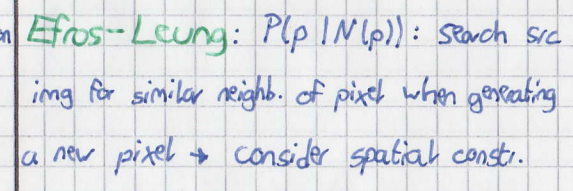 n Efros-Leung: P(p | N(p)): search src
img for similar neighb. of pixel when generating
a new pixel → consider spatial constr.